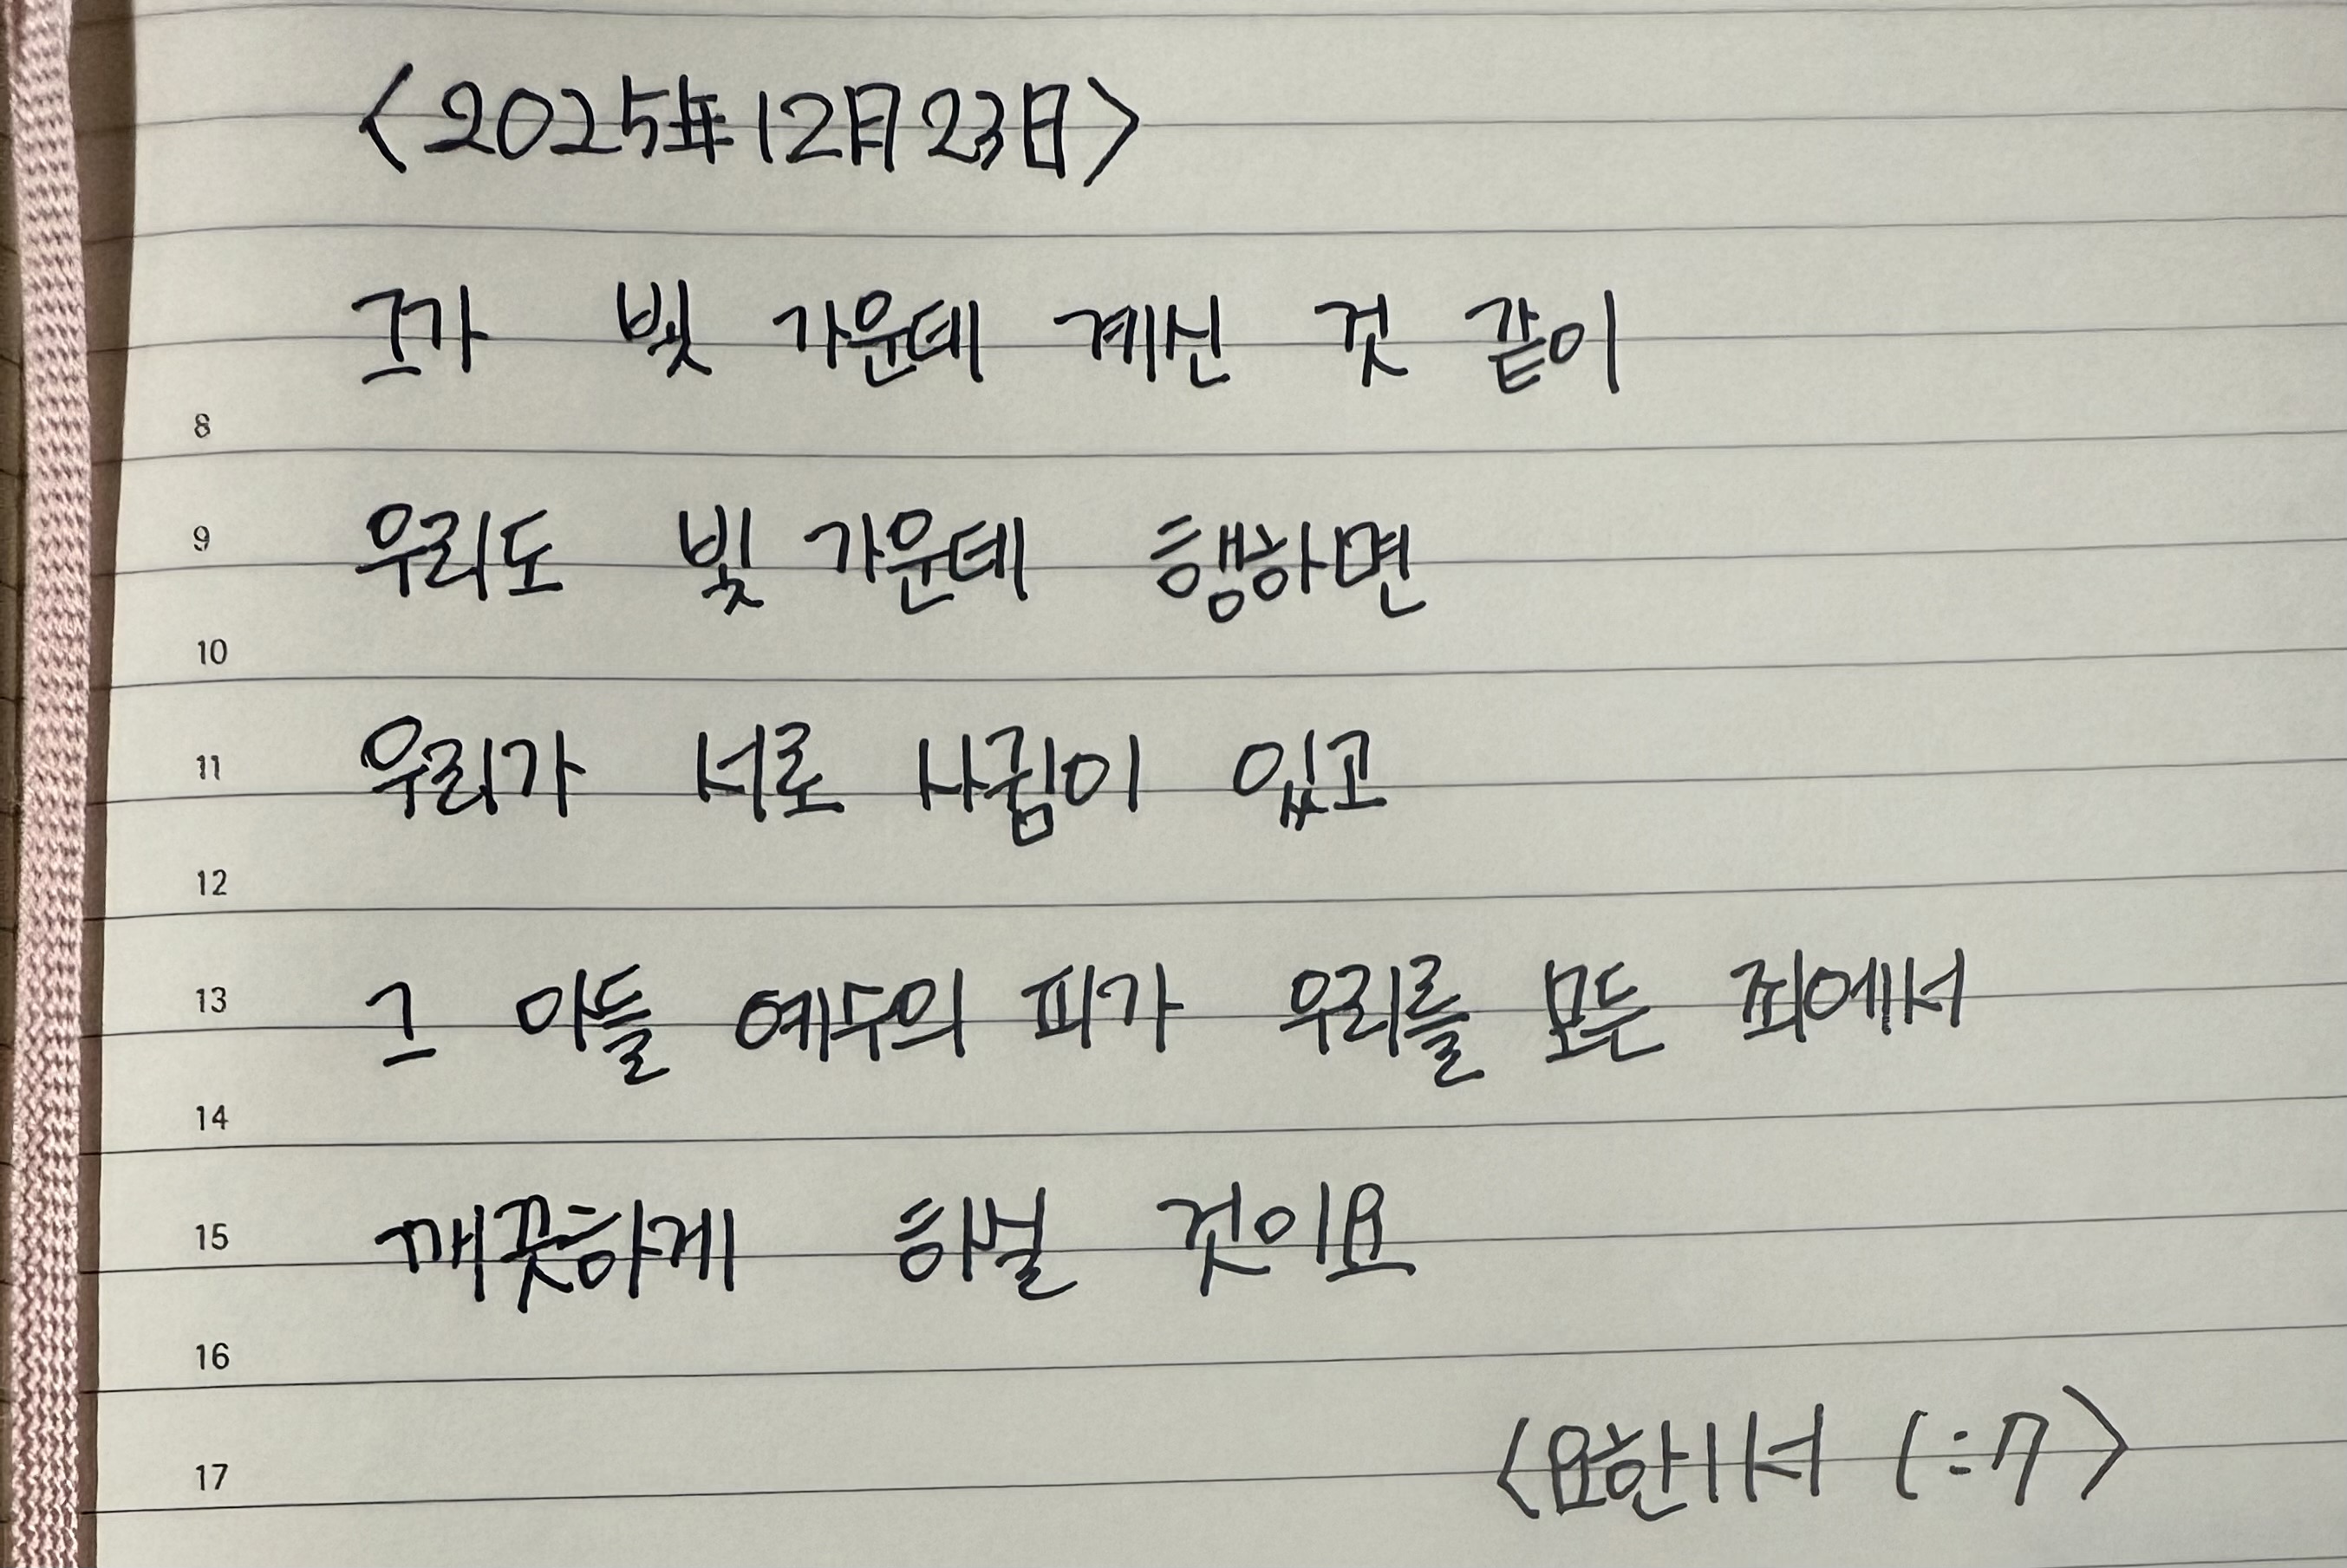 <2025年12月23日>
그가 빛 가운데 계신 것 같이
8
우리도 빛 가운데 행하면
9
10
우리가 서로 사귐이 있고
11
12
그 아들 예수의 피가 우리를 모든 죄에서
13
14
깨끗하게 하실 것이요
15
16
<요한1서 1:7>
17